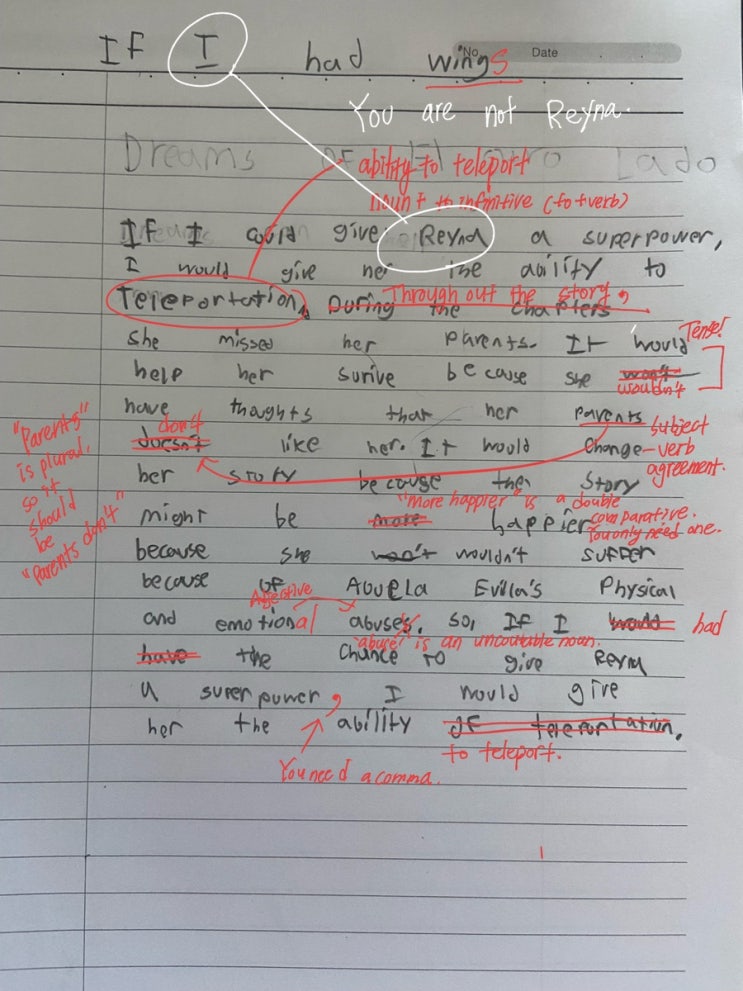 No. Date
IF I had wings
You are not Reyna.
Dreams OF Lado
ability to teleport
noun + to infinitive (to + verb)
IF I could give Reyna a superpower,
I would give her the ability to
Teleportation, During the chapters
Through out the story,
she missed her parents. It would
Tense!
help her surive because she won't
wouldn't
have thoughts that her parents
subject
don't
doesn't like her. It would change
-verb
agreement.
her story because the story
"more happier" is a double
might be more happier
comparative.
You only need one.
because she won't wouldn't suffer
because OF Abuela Evilla's Physical
Adjective
and emotional abuses. So, IF I would
had
"abuse" is an uncoutable noun.
have the Chance TO give Reyna
a superpower, I would give
her the ability OF teleportation.
to teleport.
You need a comma.
"Parents"
is plural.
so it
should
be
"Parents don't"